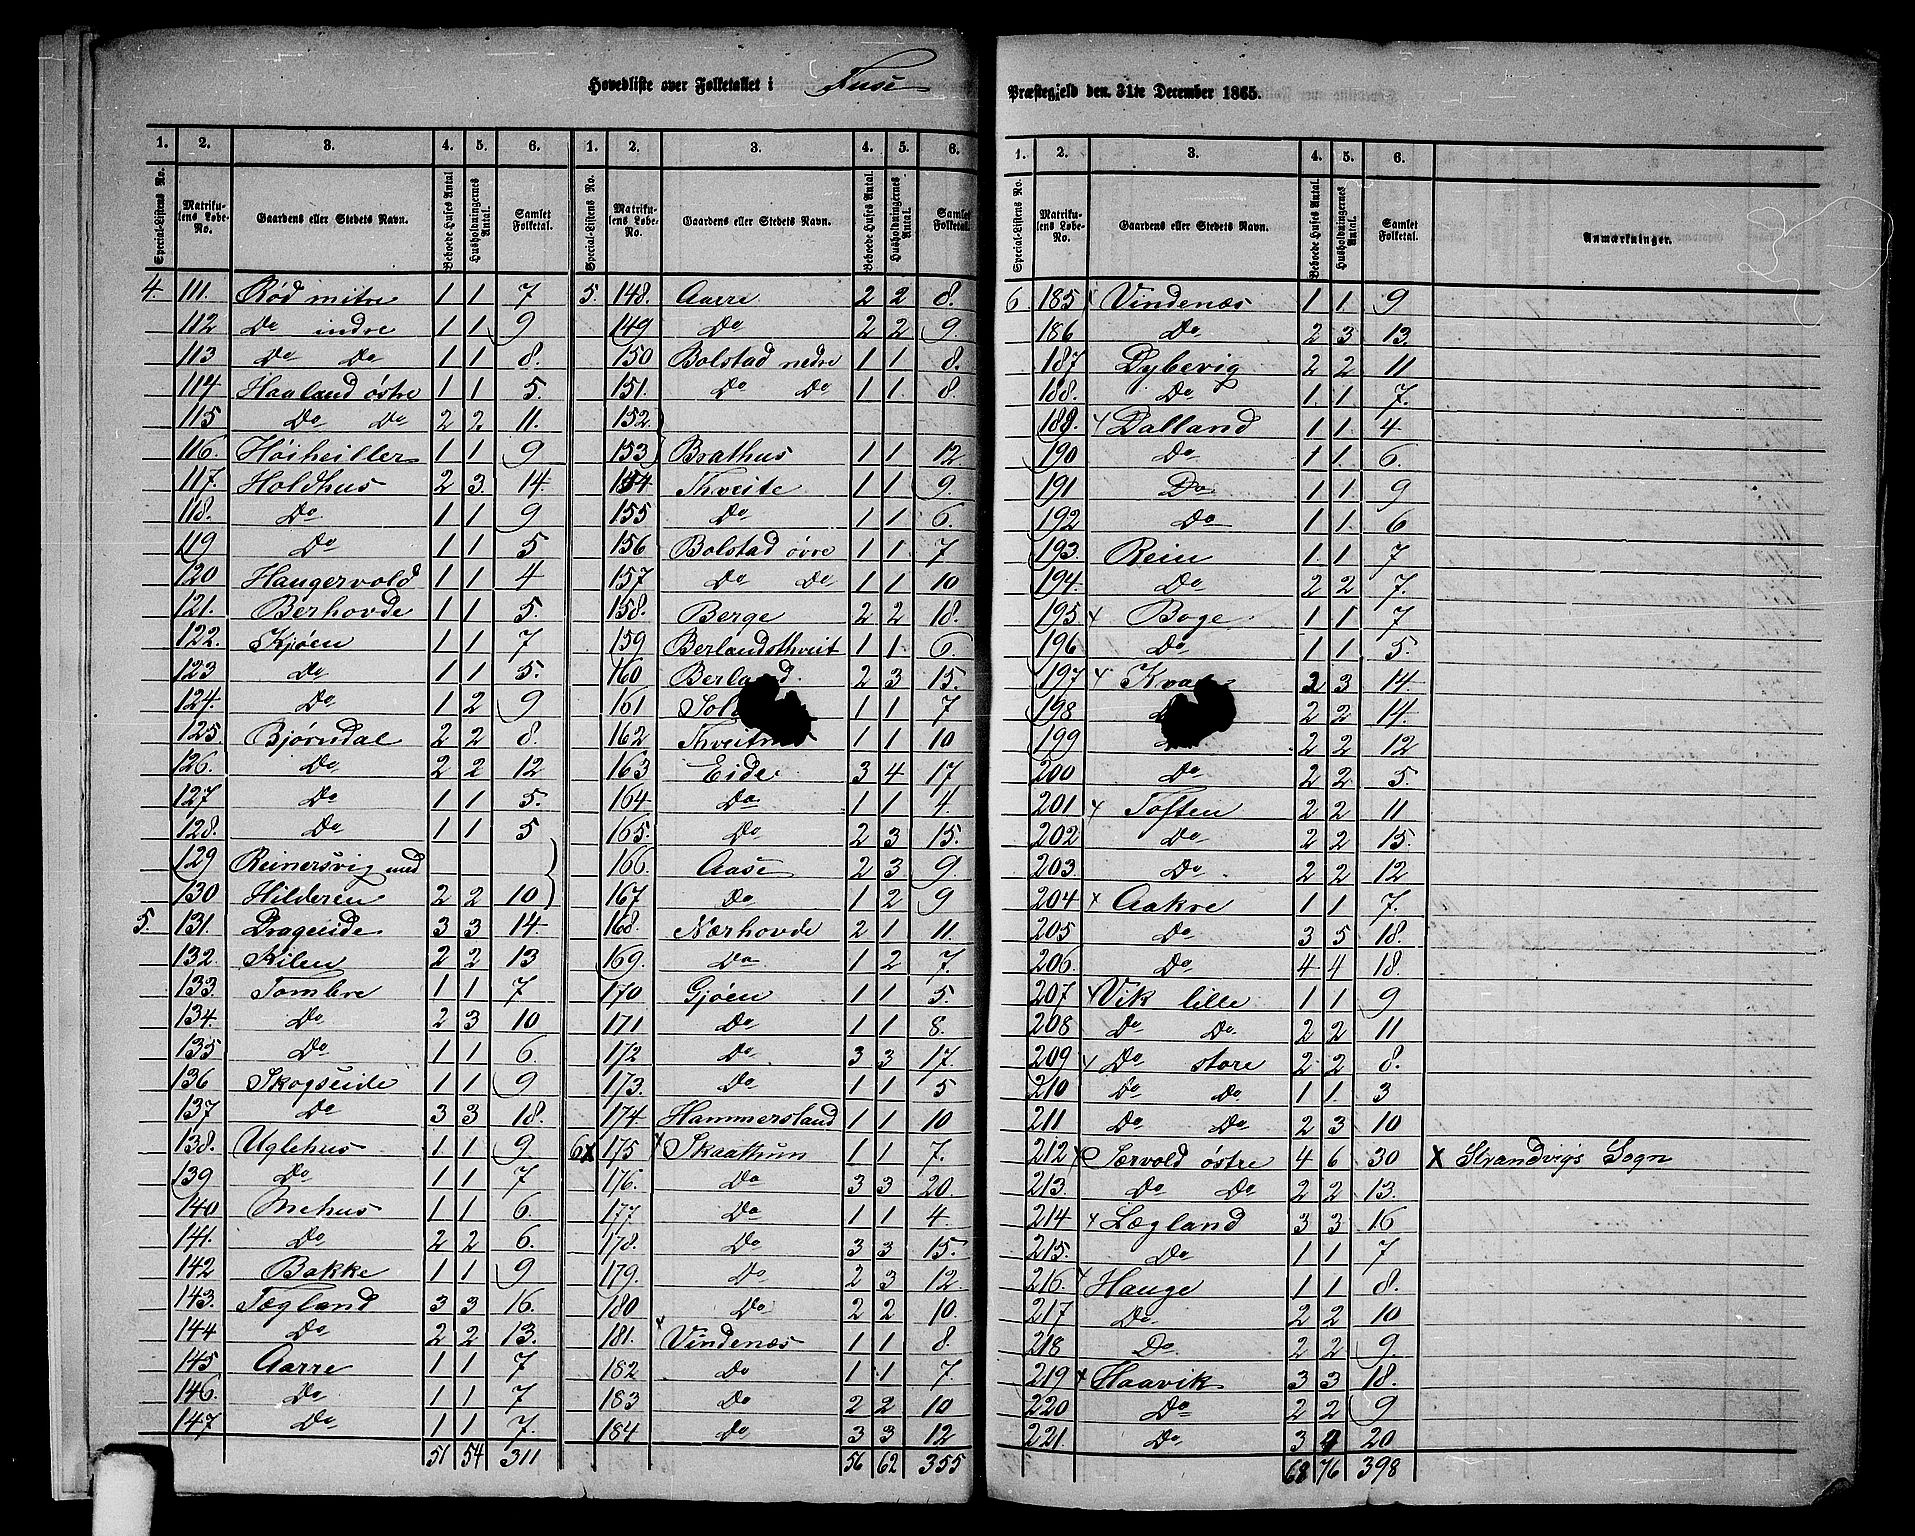 Hovedliste over Folketallet i Fuse Præstegjeld den 31te December 1865.
1. 2. 3. 4. 5. 6. 1. 2. 3. 4. 5. 6.
Special-Listens No. Matrikulens Løbe-No. Gaardens eller Stedets Navn. Beboede Huses Antal Husholdningernes Antal. Samlet Folketal. Special-Listens No. Matrikulens Løbe-No. Gaardens eller Stedets Navn. Beboede Huses Antal. Husholdningernes Antal. Samlet Folketal.
4. 111. Rød mitre 1 1 7
112 Do indre 1 1 9
113 Do Do 1 1 8.
114 Haaland østre 1 1 5.
115 Do Do 2 2 11.
116. Høiheiller 1 1 9
117. Holdhus 2 3. 14.
118. Do 1 1 9
119 Do 1 1 5
120 Haugervold 1 1 4
121. Berhovde 1 1 5.
122. Kjøen 1 1 7
123 Do 1 1 5.
124. Do 1 2 9
125 Bjørndal 2 2 8.
126. Do 2 2 12
127 Do 1 1 5.
128. Do 1 1 5
129 Reinersvig med
130 Hilderen 2 2 10
5. 131. Drageide 3 3 14
132. Kilen 2 2 13
133. Tombre 1 1 7
134. Do 2 3 10
135 Do 1 1 6.
136 Skogseide 1 1 9
137 Do 3 3 18.
138. Uglehus 1 1 9
139 Do 1 1 7
140 Mehus 1 1 6.
141. Do 2 2 6.
142 Bakke 1 1 9
143. Tægland 3 3 16.
144 Do 2 2 13.
145 Aarre 1 1 7
146. Do 1 1 7
147 Do 1 1 7.
51 54 311
5. 148. Aarre 2 2 8.
149 Do 2 2 9.
150 Bolstad nedre 1 1 8.
151. Do Do 1 1. 8.
152.
153 Brathus 1 1 12
154 Thveite 1 1 9.
155 Do 1 1 6.
156 Bolstad øvre 1 1 7
157 Do Do 1 1 10
158. Berge 2 2 18.
159 Berlandsthveit 1 1 6.
160 Berland. 2 3 15.
161 1 1 7
162 1 1 10
163 Eide 3 4 17
164 Do 1 1 4.
165. Do 2 3 15.
166. Aase 2 3 9.
167 Do 1 2 9
168. Nærhovde 2 1 11.
169. Do 1 2 7.
170 Gjøen 1 1 5.
171 Do 1 1 8.
172 Do 3 3 17.
173. Do 1 1 5
174. Hammersland 1 1 10
6 x 175 x Skaathun 1 1 7.
176. Do 3 3 20.
177 Do 1 1 4.
178. Do 3 3 15.
179. Do 2 3 12
180 Do 2 2 10.
181. x Vindenæs 1 1 8.
182 Do 1 1 7.
183 Do 2 2 10
184 Do 3 3 12
56 62 355
1. 2. 3. 4. 5. 6.
Special-Listens No. Matrikulens Løbe-No. Gaardens eller Stedets Navn. Beboede Huses Antal. Husholdningernes Antal. Samlet Folketal. Anmærkninger.
6 185 Vindenæs 1 1. 9
186 Do 2 3 13.
187 Dybevig 2 2 11
188. Do 1. 1 7.
189. x Dalland 1 1 4
190 Do 1 1. 6.
191 Do 1 1. 9
192 Do 1 1. 6
193. Rein 1. 1 7
194. Do 2 2 7.
195. x Boge 1 1 7
196 Do 1 1. 5.
197 x 3 14.
198 2 2 14.
199 2 2 12
200 Do 2 2 5.
201 x Toften 2 2 11
202 Do 2 2 15.
203. Do 2 2 12
204 x Aakre 1 1 7.
205 Do 3 5 18.
206. Do 4 4 18.
207 x Vik lille 1 1 9
208 Do Do 2 2 11
209 x Do store 2 2 8.
210 Do Do 1 1. 3
211 Do Do 2 3 10
212 x Særvold østre 4 6 30 X Strandvigs Sogn
213. Do Do 2 2 13.
214 x Lægland 3 3 16
215. Do 1 1 7
216. Hauge 1 1 8.
217 Do 2 2 10
218 Do. 2 2 9.
219 x Haavik 3 3 18.
220 Do 2 2 9
221. Do 3 4 20
68 76 398